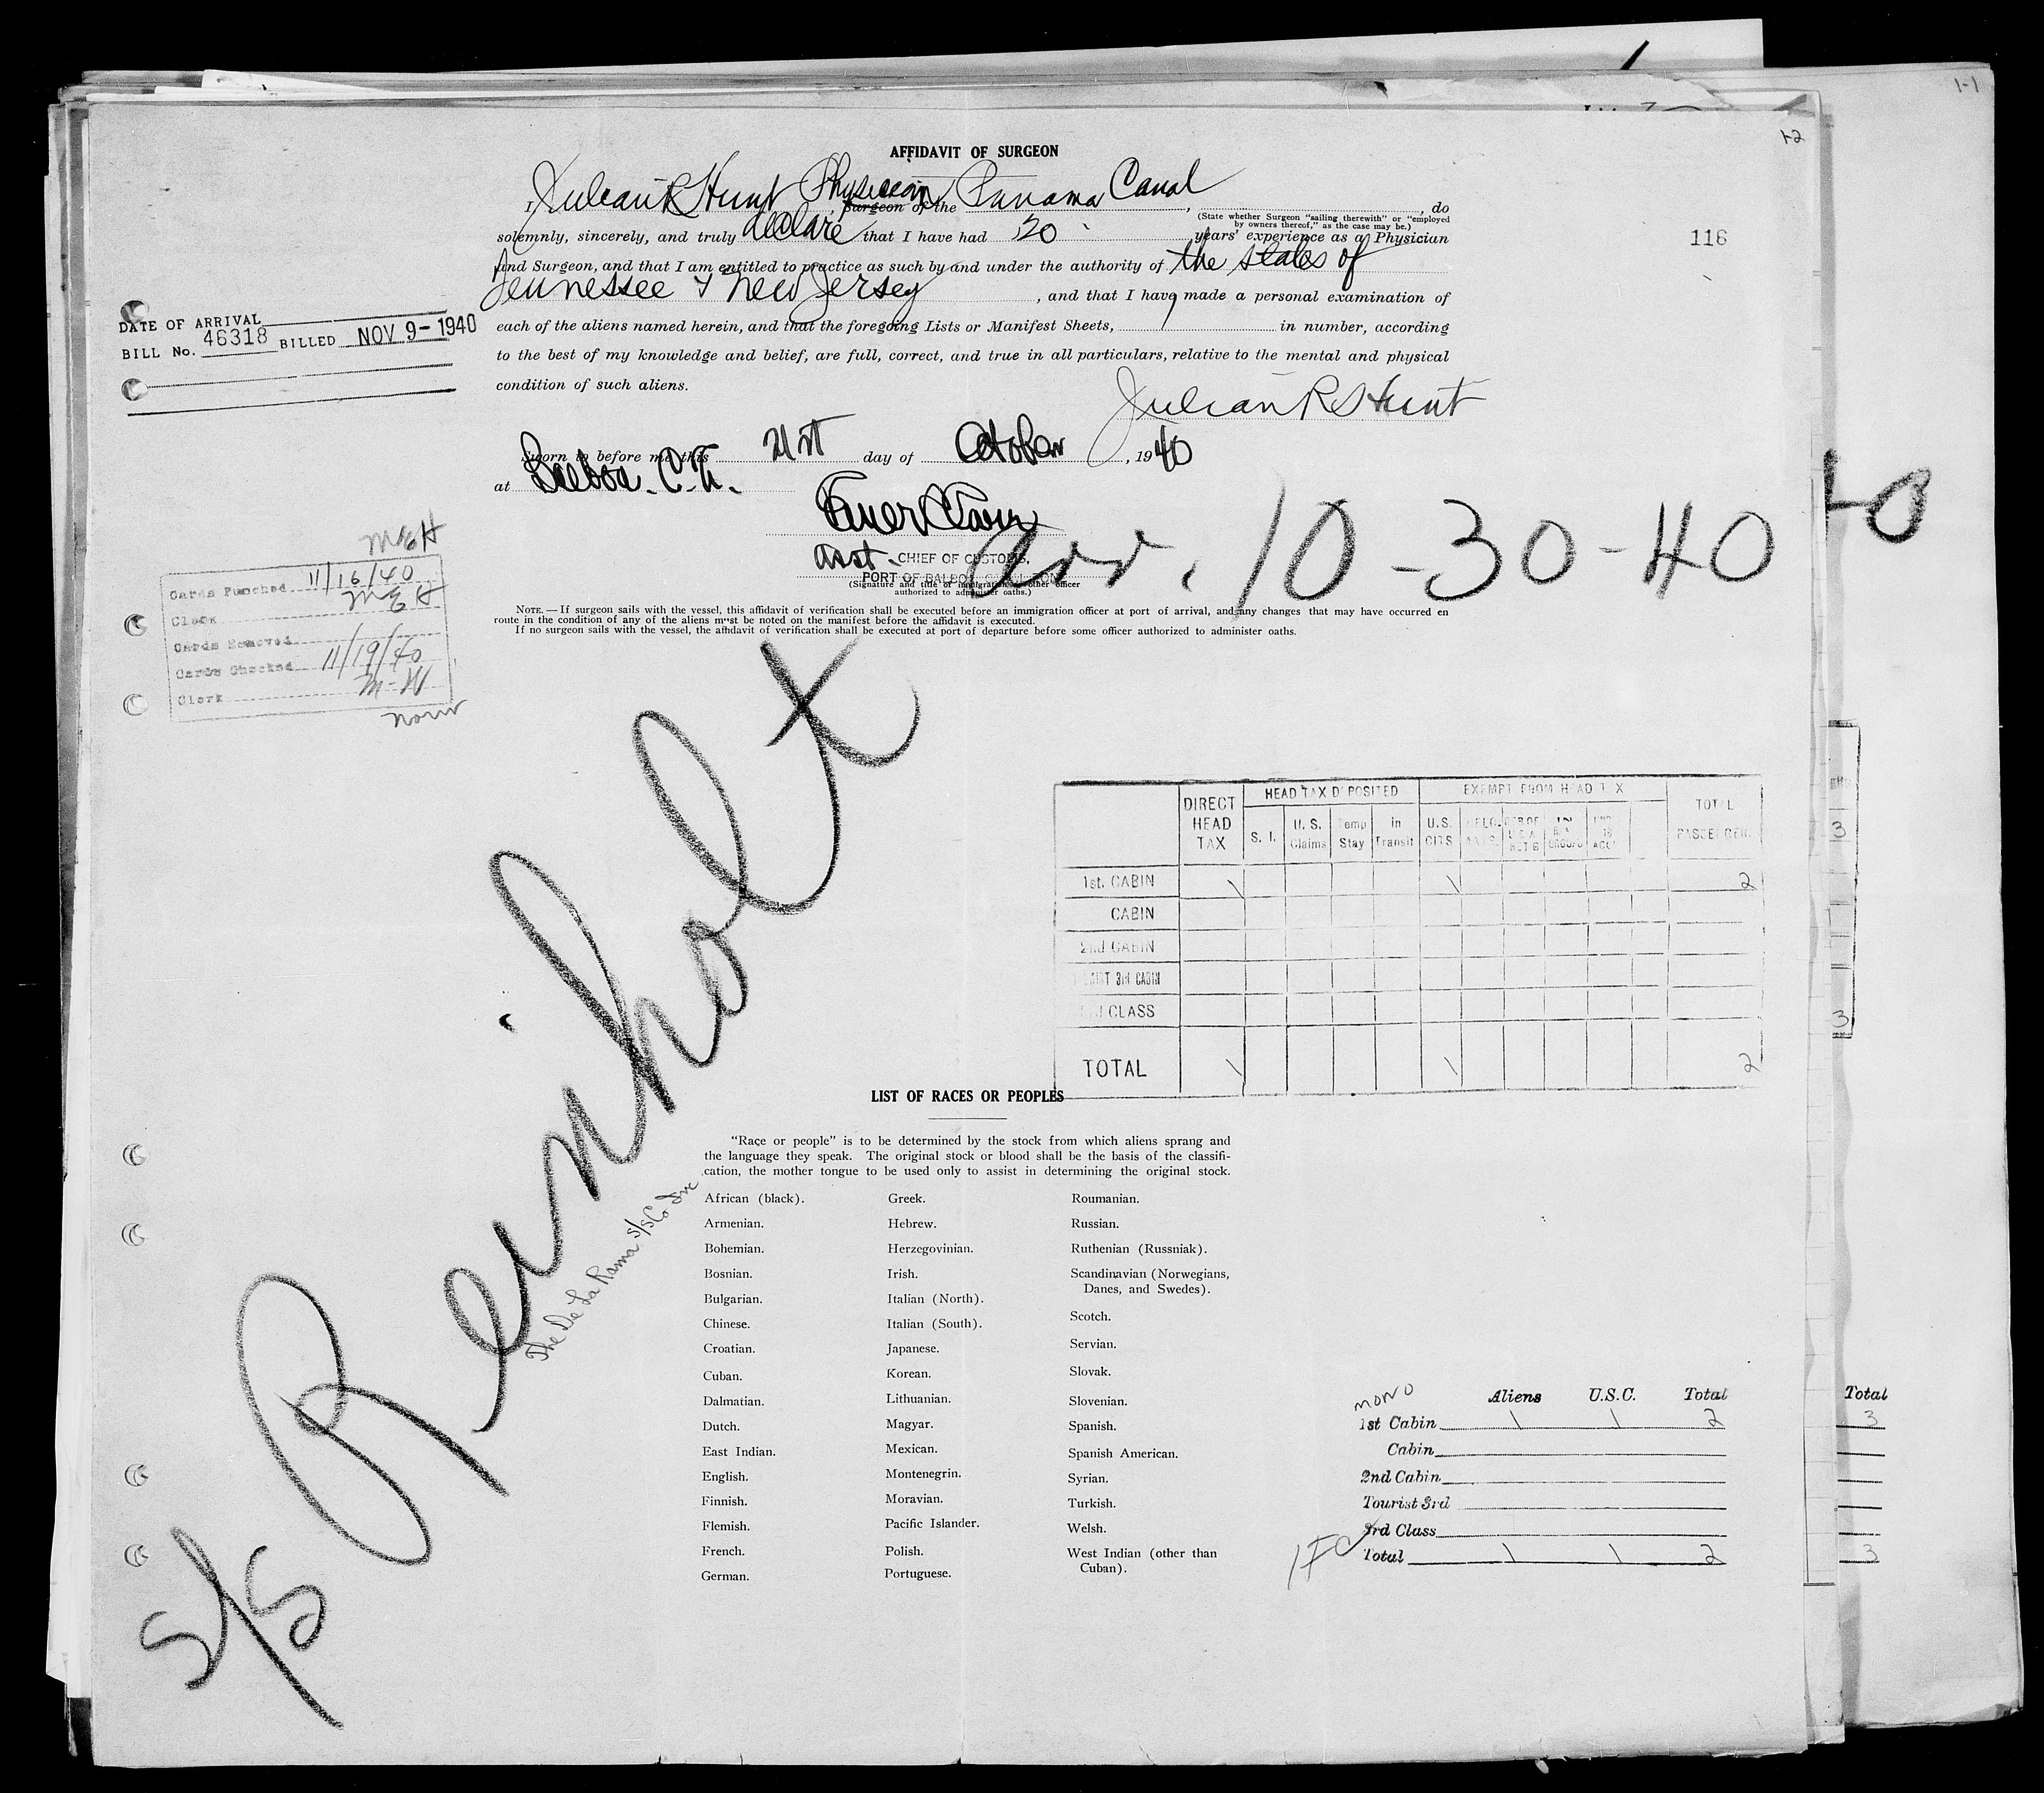 1-1
1-2
AFFIDAVIT OF SURGEON
I, Julian R Hunt Physician, Surgeon of the Panama Canal, do
(State whether Surgeon "sailing therewith" or "employed
by owners thereof," as the case may be.)
solemnly, sincerely, and truly declare that I have had 20 years' experience as a Physician
and Surgeon, and that I am entitled to practice as such by and under the authority of the states of
Tennessee & New Jersey, and that I have made a personal examination of
each of the aliens named herein, and that the foregoing Lists or Manifest Sheets, 1 in number, according
to the best of my knowledge and belief, are full, correct, and true in all particulars, relative to the mental and physical
condition of such aliens.
Julian R Hunt
116
DATE OF ARRIVAL
BILL No. 46318 BILLED NOV 9-1940
Sworn to before me this 21st day of October, 1940
at Balboa. C.Z.
Asst. CHIEF OF CUSTOMS,
PORT OF BALBOA
(Signature and title of immigration or other officer
authorized to administer oaths.)
arr. 10-30-40
NOTE.—If surgeon sails with the vessel, this affidavit of verification shall be executed before an immigration officer at port of arrival, and any changes that may have occurred en
route in the condition of any of the aliens must be noted on the manifest before the affidavit is executed.
If no surgeon sails with the vessel, the affidavit of verification shall be executed at port of departure before some officer authorized to administer oaths.
MEH
Cards Punched 11/16/40
Clerk MEH
Cards Removed
Cards Checked 11/19/40
Clerk M-W
S/S Reinholt
The De La Rama S/S Co Inc
DIRECT HEAD TAX
HEAD TAX DEPOSITED
EXEMPT FROM HEAD TAX
TOTAL PASSENGERS
S. I. U. S. Claims Temp Stay in Transit U.S. CITS
1st. CABIN 1 1 2
CABIN
2nd CABIN
TOURIST 3rd CABIN
3rd CLASS
TOTAL 1 1 2
LIST OF RACES OR PEOPLES
"Race or people" is to be determined by the stock from which aliens sprang and
the language they speak. The original stock or blood shall be the basis of the classifi-
cation, the mother tongue to be used only to assist in determining the original stock.
African (black).
Armenian.
Bohemian.
Bosnian.
Bulgarian.
Chinese.
Croatian.
Cuban.
Dalmatian.
Dutch.
East Indian.
English.
Finnish.
Flemish.
French.
German.
Greek.
Hebrew.
Herzegovinian.
Irish.
Italian (North).
Italian (South).
Japanese.
Korean.
Lithuanian.
Magyar.
Mexican.
Montenegrin.
Moravian.
Pacific Islander.
Polish.
Portuguese.
Roumanian.
Russian.
Ruthenian (Russniak).
Scandinavian (Norwegians,
Danes, and Swedes).
Scotch.
Servian.
Slovak.
Slovenian.
Spanish.
Spanish American.
Syrian.
Turkish.
Welsh.
West Indian (other than
Cuban).
mono
Aliens U.S.C. Total
1st Cabin 1 1 2
Cabin
2nd Cabin
Tourist 3rd
3rd Class
Total 1 1 2
Total
3
3
3
3